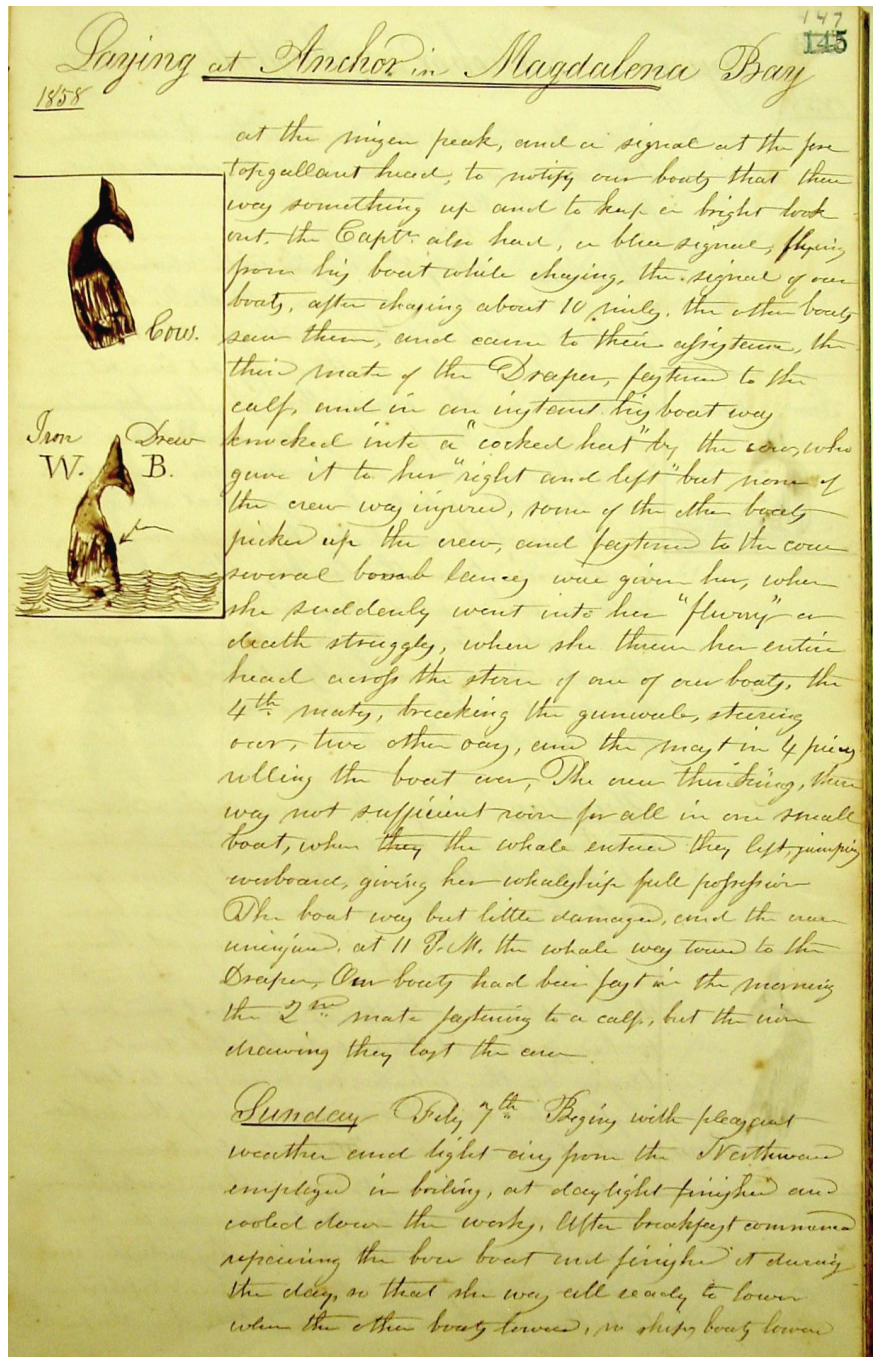 147
145
Laying at Anchor in Magdalena Bay
1858
at the mizen peak, and a signal at the fore
topgallant head, to notify our boats that there
was something up and to keep a bright look
out. the Capt. also had, a blue signal, flying
from his boat while chasing, the signal of our
boats, after chasing about 10 miles, the other boats
saw them, and came to their assistance, the
third mate of the Draper, fastened to the
calf, and in an instant his boat was
knocked into a "cocked hat" by the cow, who
gave it to her "right and left" but none of
the crew was injured, some of the other boats
picked up the crew, and fastened to the cow
several bomb lances were given her, when
she suddenly went into her "flurry" or
death struggles, when she threw her entire
head across the stern of one of our boats, the
4th mates, breaking the gunwale, steering
oar, two other oars, and the mast in 4 pieces
rolling the boat over, The crew thinking, there
was not sufficient room for all in one small
boat, when they the whale entered they left, jumping
overboard, giving her whaleship full possession
The boat was but little damaged, and the crew
uninjured. at 11 P.M. the whale was towed to the
Draper, Our boats had been fast in the morning
the 2nd mate fastening to a calf, but the iron
drawing they lost the cow
Cow.
Iron Drew
W. B.
Sunday Feby 7th Begins with pleasant
weather and light airs from the Northward
employed in boiling, at daylight finished and
cooled down the works. After breakfast commenced
repairing the bow boat and finished it during
the day, so that she was all ready to lower
when the other boats lowered, no ships boats lowered